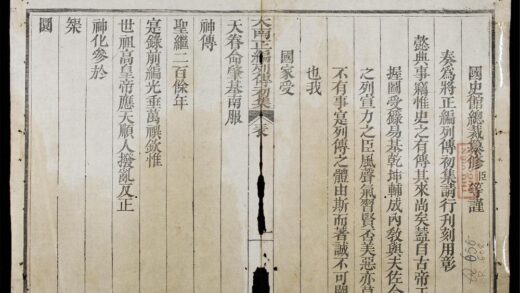 國史館總裁纂修臣等謹
奏爲將正編列傳初集請行刊刻用彰
懿典事竊惟史之有傳其來尚矣蓋自古帝
握圖受籙易基乾坤輔成內敎與夫佐
之列宣力之臣風聲氣習賢否美惡亦
不有事寔列傳之體由斯而著誠不可
也我
國家受
大南正編列傳初集
天眷命肇基南服
神傳
聖繼二百餘年
寔錄前編光垂萬禩欽惟
世祖高皇帝應天順人撥亂反正
神化參於
榘
圓